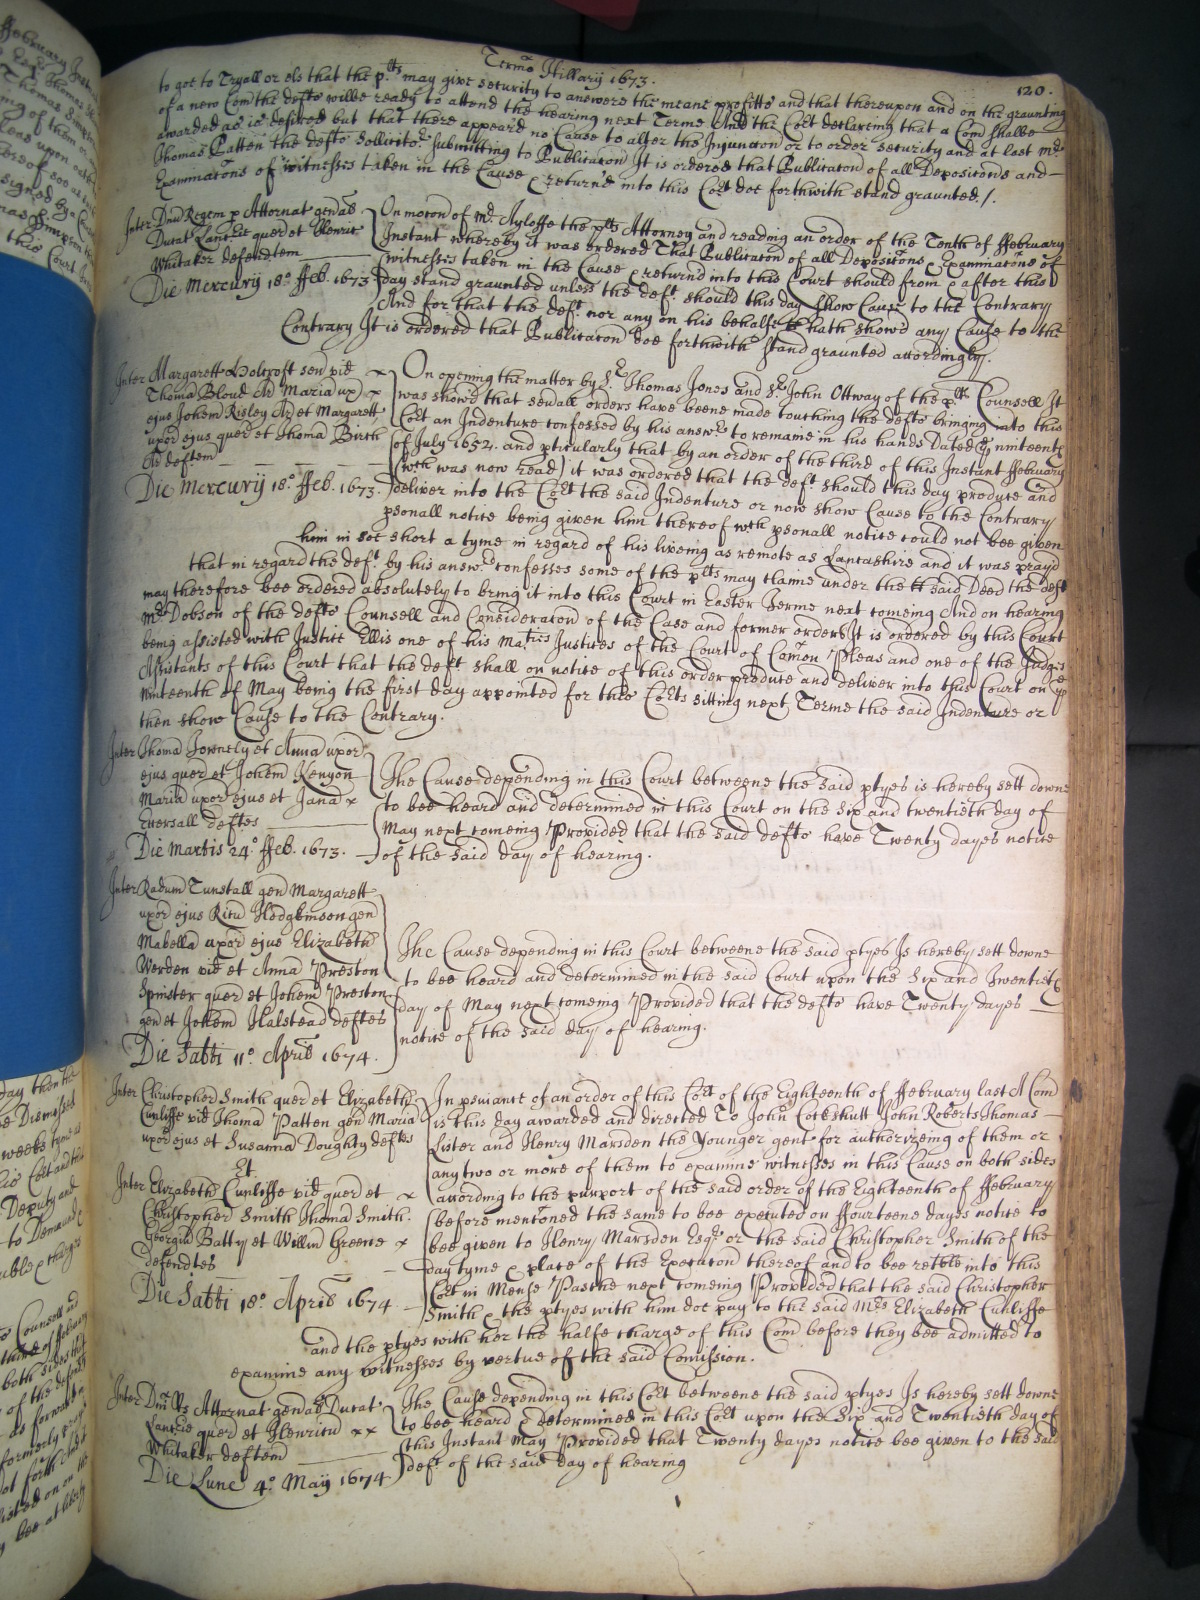 Termo Hillarij 1673.
120.
to goe to Tryall or els that the p.lts may give security to answere the meane profitts and that thereupon and on the graunting
of a new Com the defts wilbe ready to attend the hearing next Terme And the Cort declareing that a Com shalbe
awarded as is desired but that there appeard no Cause to alter the Injunccon or to order security and at last mr.
Thomas Patten the defts Sollicitor. submitting to Publicacon It is ordered that Publicacon of all Deposicons and
Examinacons of witnesses taken in the Cause & return'd into this Cort doe forthwith stand graunted./.
Inter Dnu Regem p Attornat genal
Ducat Lancrie quer et Henric
Whitaker defendtem
Die Mercurij 18.o ffeb. 1673
On mocon of mr. Ayloffe the plts Attorney and reading an order of the Tenth of ffebruary
Instant whereby it was ordered That Publicacon of all Deposicons & Examinacons of
witnesses taken in the Cause & return'd into this Court should from & after this
day stand graunted unless the deft. should this day show Cause to the Contrary
And for that the deft. nor any on his behalfe hath showd any Cause to the
Contrary It is ordered that Publicacon doe forthwith stand graunted accordingly.
Inter Margarett Holcroft sen vid x
Thoma Bloud Ar Maria ux x
ejus Johem Risley Ar et Margarett
uxor ejus quer et Thoma Birch
Ar deftem
Die Mercurij 18.o ffeb. 1673.
On opening the matter by Sr. Thomas Jones and Sr. John Ottway of the plts Counsell It
was showd that sevall orders have beene made touching the defts bringing into this
Cort an Indenture confessed by his answr. to remaine in his hands Dated ye nineteenth
of July 1652. and pticularly that by an order of the third of this Instant ffebruary
(wch was now read) it was ordered that the deft should this day produce and
deliver into the Cort the said Indenture or now show Cause to the Contrary
psonall notice being given him thereof wch psonall notice could not bee given
him in soe short a tyme in regard of his liveing as remote as Lancashire and it was pray'd
that in regard the deft. by his answr. confesses some of the plts may claime under the said Deed the deft
may therefore bee ordered absolutely to bring it into this Court in Easter Terme next comeing And on hearing
mr. Dobson of the defts Counsell and Consideracon of the Case and former orders It is ordered by this Court
being assisted with Justice Ellis one of his Maties Justices of the Court of Comon Pleas and one of the Judges
Assistants of this Court that the deft shall on notice of this order produce and deliver into this Court on ye
Nineteenth of May being the first day appointed for this Corts sitting next Terme the said Indenture or
then show Cause to the Contrary.
Inter Thoma Townely et Anna uxor
ejus quer et Johem Kenyon
Maria uxor ejus et Jana x
Eversall deftes
Die Martis 24.o ffeb. 1673.
The Cause depending in this Court betweene the said ptyes is hereby sett downe
to bee heard and determined in this Court on the Six and twentieth day of
May next comeing Provided that the said defts have Twenty dayes notice
of the said day of hearing.
Inter Radum Tunstall gen Margarett
uxor ejus Ricu Hodgkinson gen
Mabella uxor ejus Elizabeth
Werden vid et Anna Preston
Spinster quer et Johem Preston
gen et Johem Halstead deftes
Die Sabbi 11.o Aprilis 1674.
The Cause depending in this Court betweene the said ptyes Is hereby sett downe
to bee heard and determined in the said Court upon the Six and Twentieth
day of May next comeing Provided that the defts have Twenty dayes
notice of the said day of hearing.
Inter Christopher Smith quer et Elizabeth
Cunliffe vid Thoma Patten gen Maria
uxor ejus et Susanna Doughty deftes
Et
Inter Elizabeth Cunliffe vid quer et x
Christopher Smith Thoma Smith.
Georgiu Batty et Willm Greene x
defendtes
Die Sabbi 18.o Aprilis 1674
In psuance of an order of this Cort of the Eighteenth of ffebruary last A Com
is this day awarded and directed To John Cockshutt John Roberts Thomas
Lister and Henry Marsden the Younger gent for authorizeing of them or
any two or more of them to examine witnesses in this Cause on both sides
according to the purport of the said order of the Eighteenth of ffebruary
before mentoned the same to bee executed on ffourteene dayes notice to
bee given to Henry Marsden Esqr. or the said Christopher Smith of the
day tyme & place of the Execucon thereof and to bee retble into this
Cort in Mense Pasche next comeing Provided that the said Christopher
Smith & the ptyes with him doe pay to the said Mrs. Elizabeth Cunliffe
and the ptyes with her the halfe charge of this Com before they bee admitted to
examine any witnesses by vertue of the said Comission.
Inter Dm Rs Attornat genal Ducat
Lancrie quer et Henricu x x
Whitaker deftem
Die Lune 4.o Maij 1674
The Cause depending in this Cort betweene the said ptyes Is hereby sett downe
to bee heard & determined in this Cort upon the Six and Twentieth day of
this Instant May Provided that Twenty dayes notice bee given to the said
deft. of the said day of hearing